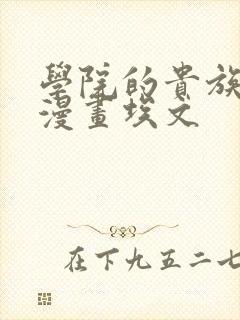 學院的貴族
漫畫埃文
在下九五二七